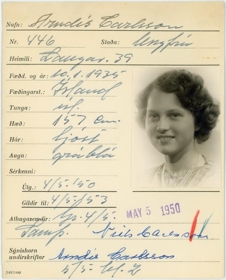 Nafn: Arndís Carlsson
Nr. 446 Staða: ungfrú
Heimili: Laugav. 39
Fædd. og ár: 10.1.1935
Fæðingarst.: Ísland
Tunga: ísl.
Hæð: 157 cm.
Hár: ljóst
Augu: gráblá
Sérkenni:
Útg.: 4/5 '50
Gildir til 4/5 '53
Athugasemdir: 4/5.
MAY 5 1950
Samp. Niels Carlsson
Sýnishorn undirskriftar
Arndís Carlsson
5/5